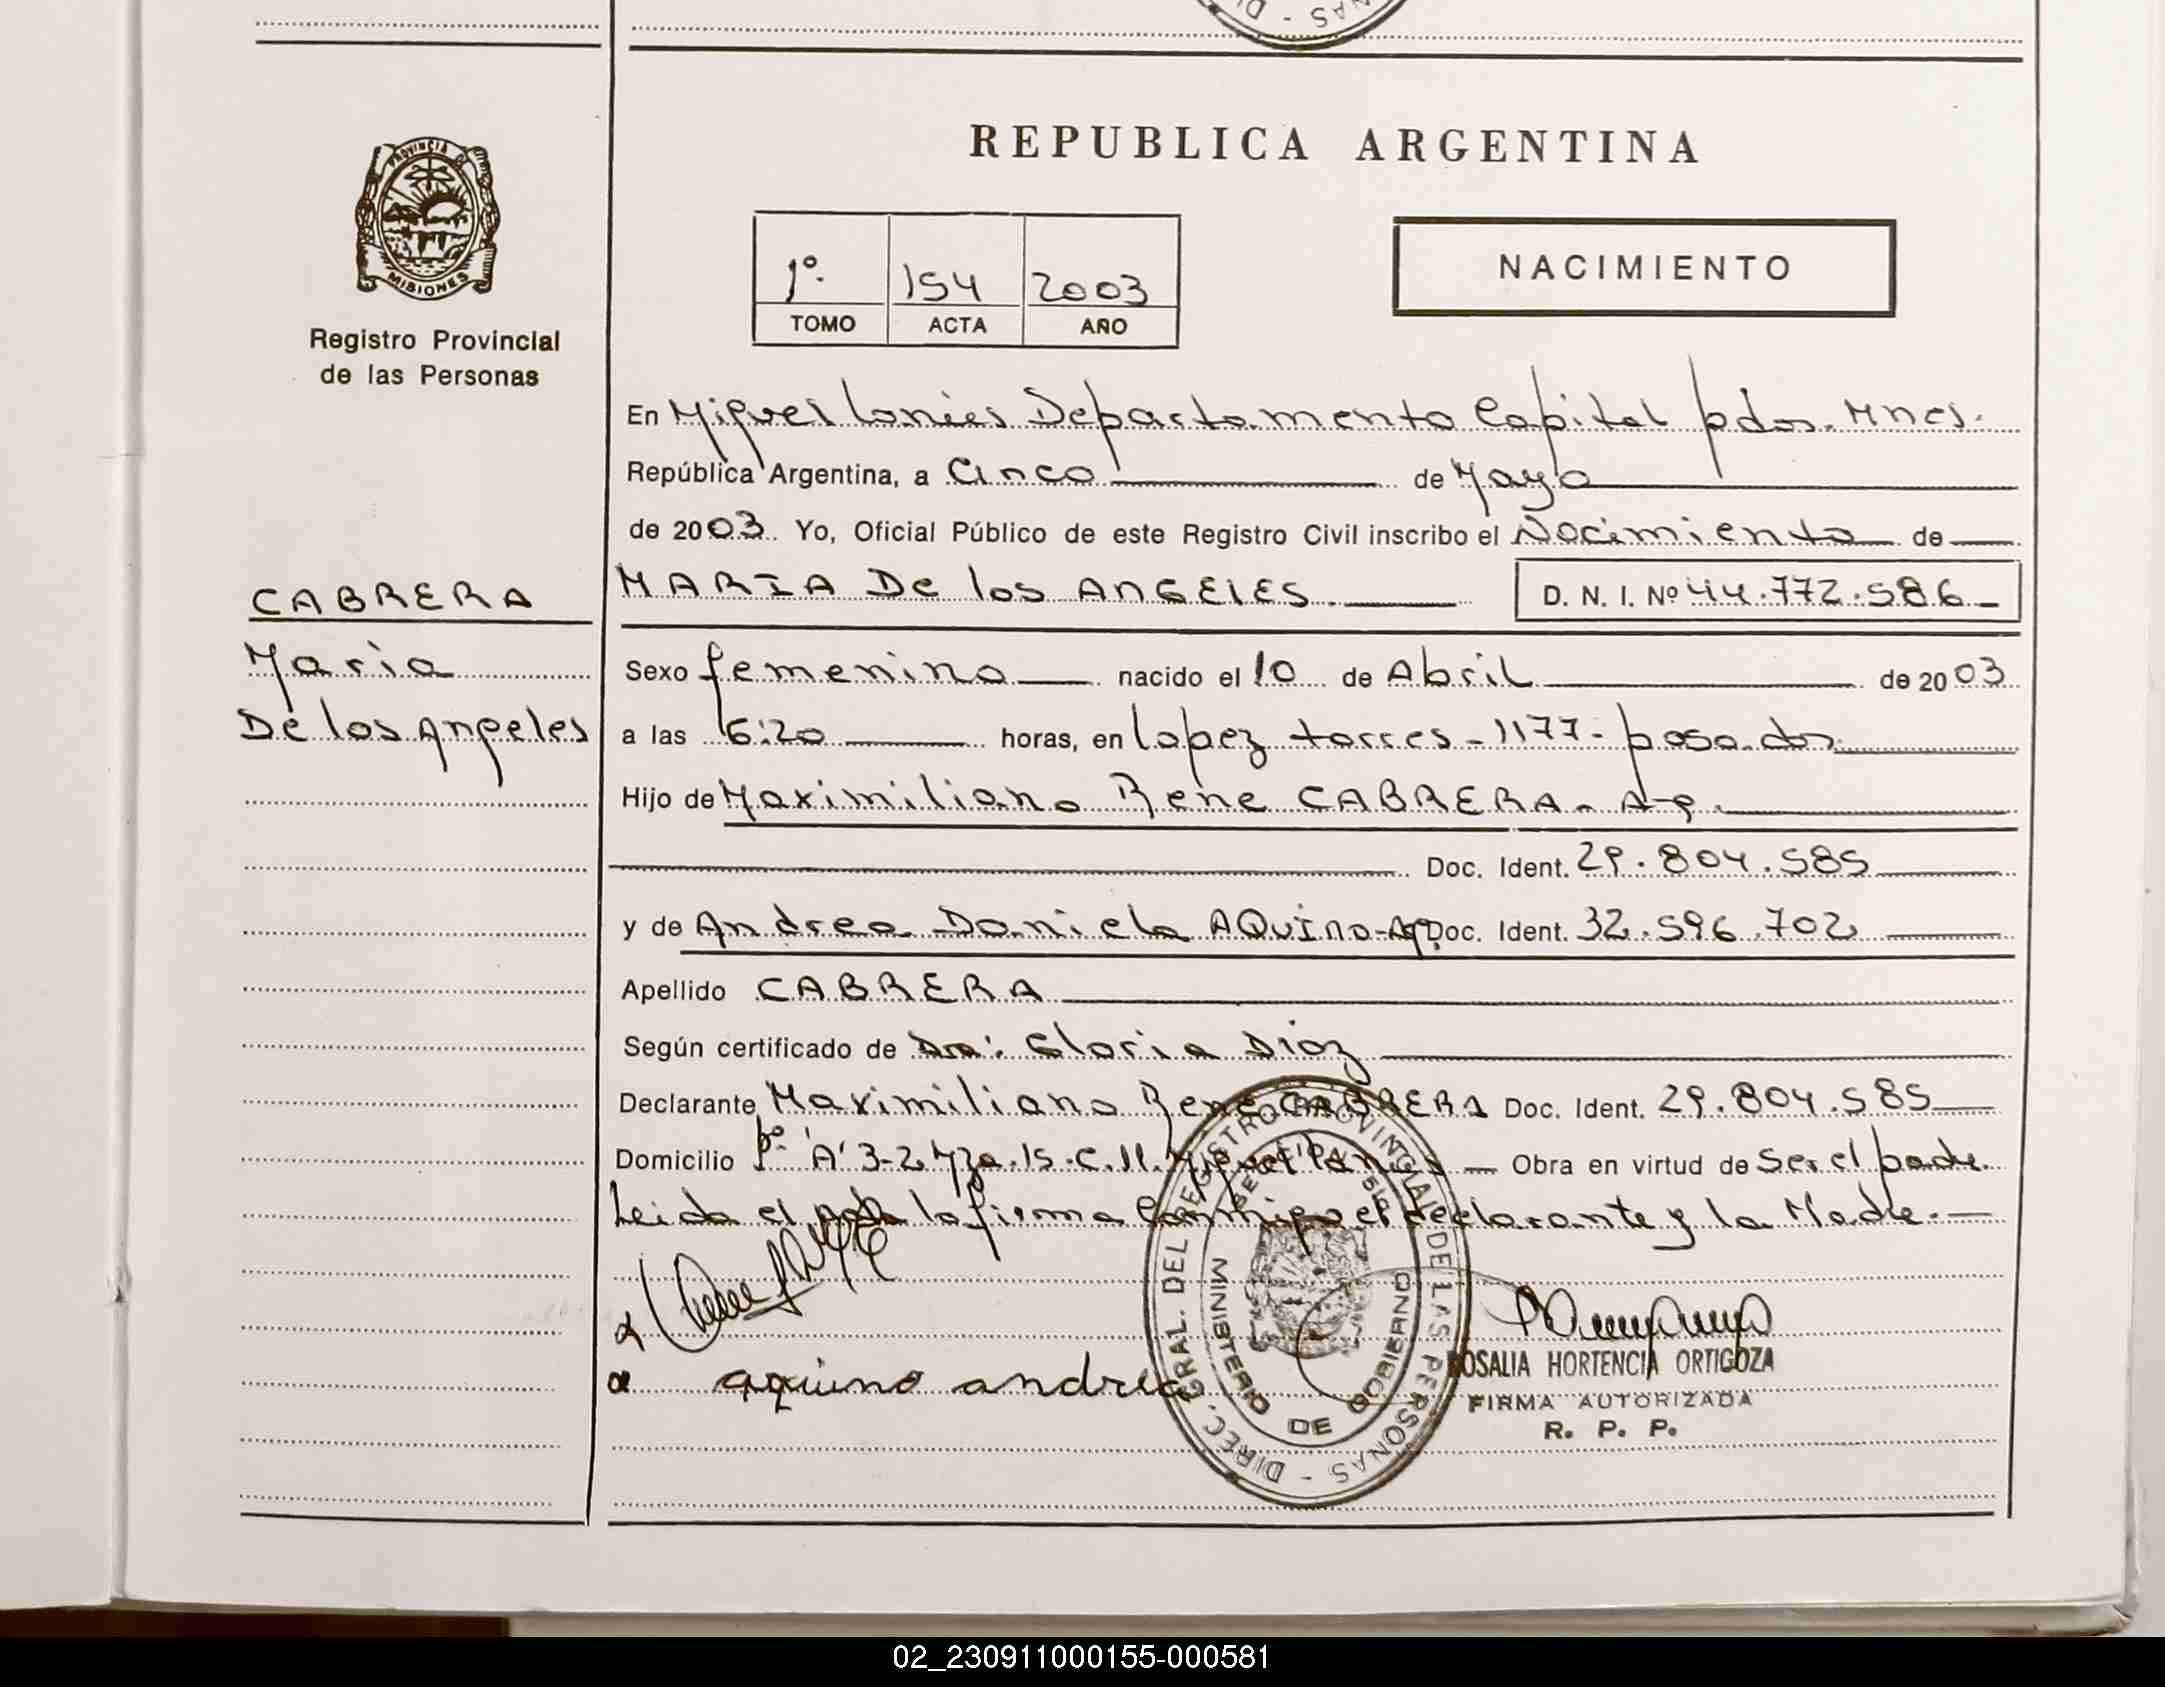 REPUBLICA ARGENTINA
PROVINCIA D
MISIONES
Registro Provincial
de las Personas
1º. 154 2003
TOMO ACTA AÑO
NACIMIENTO
En Miguel Lanús Departamento Capital pdas. Mnes.
República Argentina, a Cinco de Mayo
de 2003. Yo, Oficial Público de este Registro Civil inscribo el Nacimiento de
MARIA De los ANGELES. D. N. I. Nº 44.772.586
CABRERA
Maria
De los Angeles
Sexo femenino nacido el 10 de Abril de 2003
a las 6:20 horas, en lopez torres - 1177 - posadas
Hijo de Maximiliano Rene CABRERA - Ag.
Doc. Ident. 29.804.585
y de Andrea Daniela AQUINO - Ag Doc. Ident. 32.596.702
Apellido CABRERA
Según certificado de Dra: Gloria Diaz
Declarante Maximiliano Rene CABRERA Doc. Ident. 29.804.585
Domicilio 'A' 3-2 Mza. 15. C. Miguel Lanús Obra en virtud de Ser el padre
Leida el acta la firma Conmigo el declarante y la Madre.
aquino andrea
DIREC. GRAL. DEL REGISTRO PROVINCIAL DE LAS PERSONAS
MINISTERIO DE GOBIERNO
ROSALIA HORTENCIA ORTIGOZA
FIRMA AUTORIZADA
R. P. P.
02_230911000155-000581